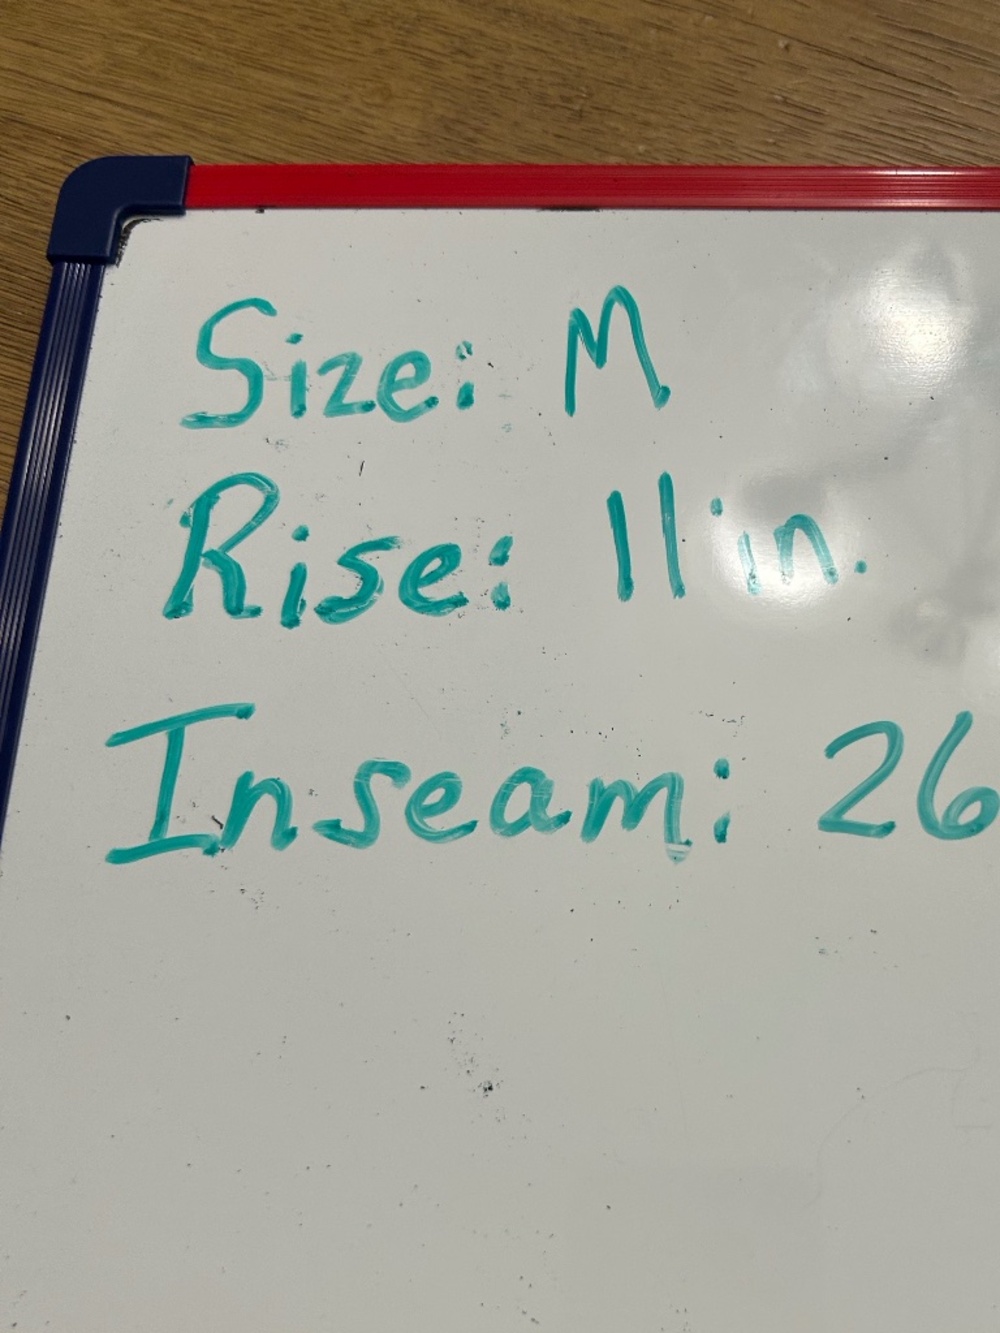 Size: M
Rise: 11 in.
Inseam: 26